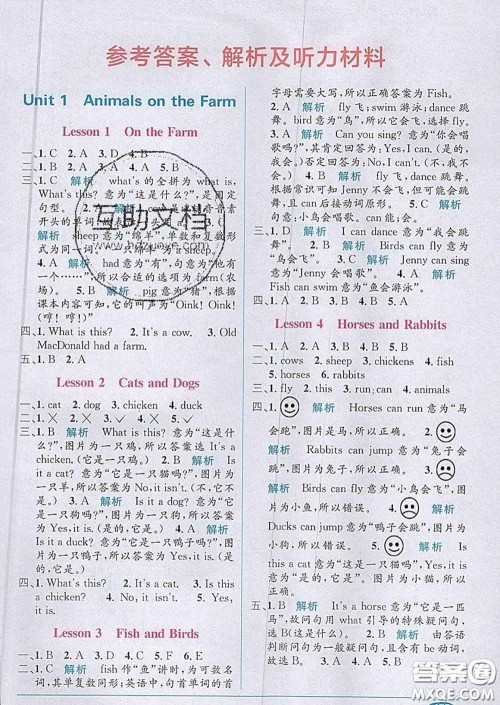 参考答案、解析及听力材料
Unit 1 Animals on the Farm
Lesson 1 On the Farm
一、1. C 2. A 3. D 4. B
三、1. C 解析 what's 的全拼为 what is,
What's this? 意为“这是什么?”,是固定
句型。2. A
开头的单词
B 解析 sheep 意为“绵羊”,单数和复数形
式为同一词
A 解析 had 意为“有”,句意为“他
有一个……”,所以合适的选项为 farm(农
场)。5. B 解析 pig 意为“猪”,根
据课本内容可知,它的叫声为“Oink! Oink!
(哼! 哼!)”
四、1. What is this? 2. It's a cow. 3. Old
MacDonald had a farm.
五、1. B
Lesson 2 Cats and Dogs
一、1. cat 2. dog 3. chicken 4. duck
二、1. ✓ 2. ✕ 3. ✕ 4. ✓
三、1. B 解析 What is this? 意为“这是什
么?”,图片为一只鸡,所以答案选 It's a
chicken.(它是一只鸡)。2. B 解析 Is
it a cat? 意为“它是一只猫吗?”,图片为
一只羊,所以答案为 No, it isn't.(不,它不
是)。3. A 解析 Is it a dog? 意为“它是
一只狗吗?”,图片为一只狗,所以答案为
Yes, it is.(是的,它是)。4. A 解析 Is
it a duck? 意为“它是一只鸭子吗?”,图
片为一只鸭子,所以答案为 Yes, it is.
(是的,它是)。
四、1. What is this? 2. It's a cat. 3. Is this
a cow? 4. No, it isn't. 5. Yes, it is.
Lesson 3 Fish and Birds
一、1. C 2. A 3. B 4. D 5. F 6. E
二、1. C 解析 fish 作“鱼”讲时,为可数名词,
其单复数同形;英语中,句首单词的首
字母需要大写,所以正确答案为 Fish。
2. A 解析 fly 飞;swim 游泳;dance 跳
舞。bird 意为“鸟”,鸟会飞,所以选择 fly。
3. A 解析 Can you sing? 意为“你会唱
歌吗?”,其肯定回答为:Yes, I can.(是的,
我会。)否定回答为:No, I can't.(不,我不
会。) 4. A 解析 fly 飞;sing 唱歌;dance
跳舞。根据常识可知 Jenny 不会飞,但根据
课本可知 Jenny 会唱歌,不会跳舞,所以选
择 sing。can 会,能。
三、1. B 2. A 3. B 解析 Birds can fly 意
为“鸟会飞”。4. C 解析 Jenny can
sing 意为“Jenny 会唱歌”。5. A 解析
Fish can swim 意为“鱼会游泳”。
四、1. B 2. B 3. A 4. B 5. A
Lesson 4 Horses and Rabbits
一、1. cows 2. sheep 3. chickens 4. fish
5. horses 6. rabbits
三、1. fly 2. this 3. run; can 4. animals
四、1. 解析 Horses can run 意为“马
会跑”,图片是马,所以正确。2.
解析 Rabbits can jump 意为“兔子会
跳”,图片为兔子,所以正确。3.
解析 Birds can fly 意为“小鸟会飞”,
图片为 ,所以错误。4. 解析
Ducks can jump 意为“鸭子会跳”,图片为
小狗,所以错误。5. 解析 Cats can
play 意为“小猫会玩耍”,图片为小猫,所以
正确。
五、1. B 解析 It's a horse 意为“它是一
匹马”,故问句用 what 引导的特殊疑问句,
选 B(这是什么?)。2. B 解析 由答语
判断问句为一般疑问句,且根据 it 可知,
故选 B。3. A 4. B 5. A
互助文档
答案圈
MXQE.COM